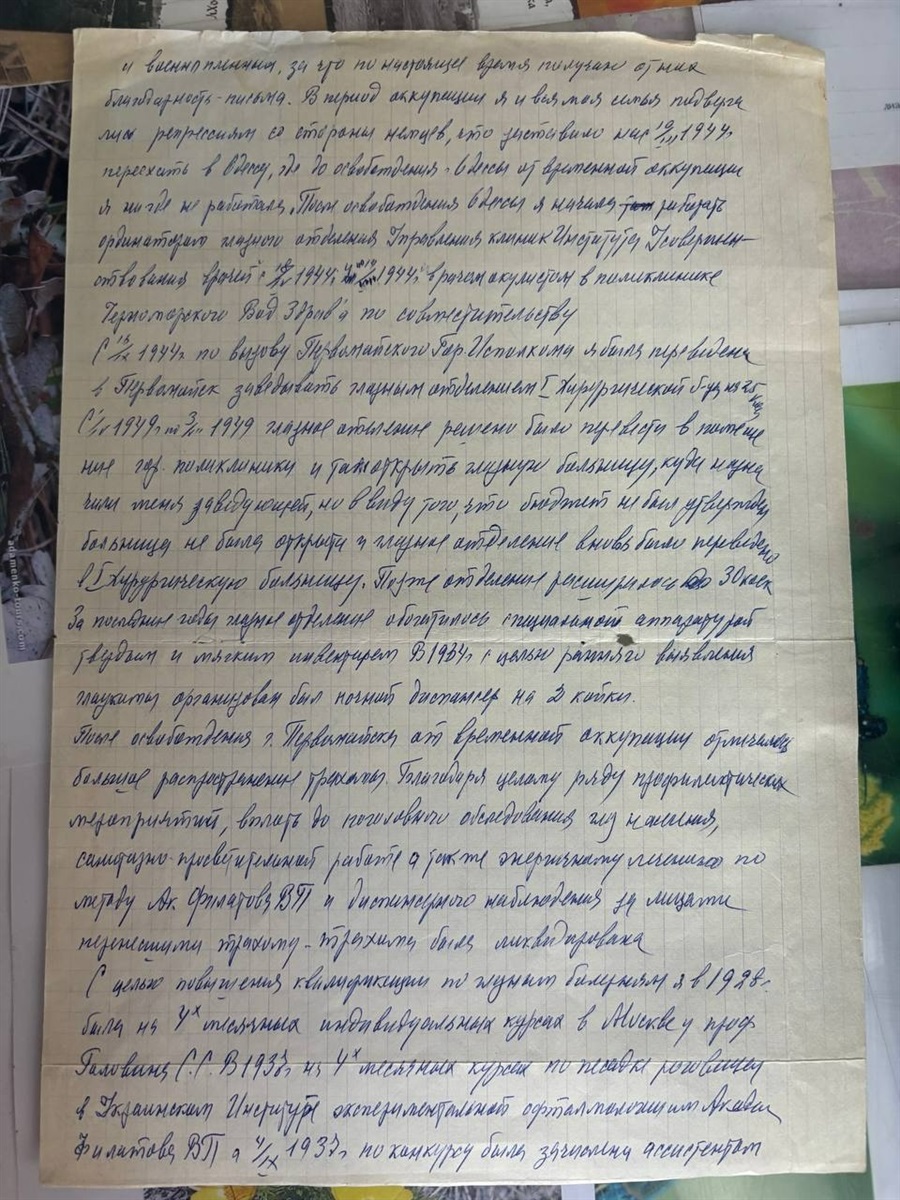 и военнопленным, за что по настоящее время получаю от них
благодарность-письма. В период оккупации я и вся моя семья подверга
лись репрессиям со стороны немцев, что заставило нас 1944г
переехать в Одессу, где до освобождения Одессы от временной оккупации
я нигде не работала. После освобождения Одессы я начала работать
ординатором глазного отделения Управления клиник Института Усовершен-
ствования врачей с 1944г 1944г врачом окулистом в поликлинике
Черноморского Вод. Здрав'а по совместительству
С 1944г по вызову Первомайского Гор.Исполкома я была переведена
в Первомайск заведывать глазным отделением I Хирургической б-цы на 25
С 1949г по 1949 глазное отделение решено было перевести в помеще
ние гор. поликлиники и там открыть глазную больницу, куда назна
чили меня заведующей, но в виду того, что бюджет не был утвержден
больница не была открыта и глазное отделение вновь было переведено
в I Хирургическую больницу. Позже отделение расширилось до 30 коек
За последние годы глазное отделение обогатилось специальной аппаратурой
твердым и мягким инвентарем В 1934г с целью раннего выявления
глаукомы организован был ночной диспансер на 2 койки.
После освобождения г. Первомайска от временной оккупации отмечалось
большое распространение трахомы. Благодаря целому ряду профилактических
мероприятий, вплоть до поголовного обследования глаз населения,
санитарно-просветительной работе а также энергичному лечению по
методу Ак Филатова ВП и диспансерного наблюдения за лицами
перенесшими трахому-трахома была ликвидирована
С целью повышения квалификации по глазным болезням я в 1928г.
была на 4х месячных индивидуальных курсах в Москве у проф
Головина С.С. В 1937г на 4х месячных курсах по пересадке роговицы
в Украинском Институте экспериментальной офталмологии им Акади
Филатова ВП а 4/IX 1937г по конкурсу была зачислена ассистентом